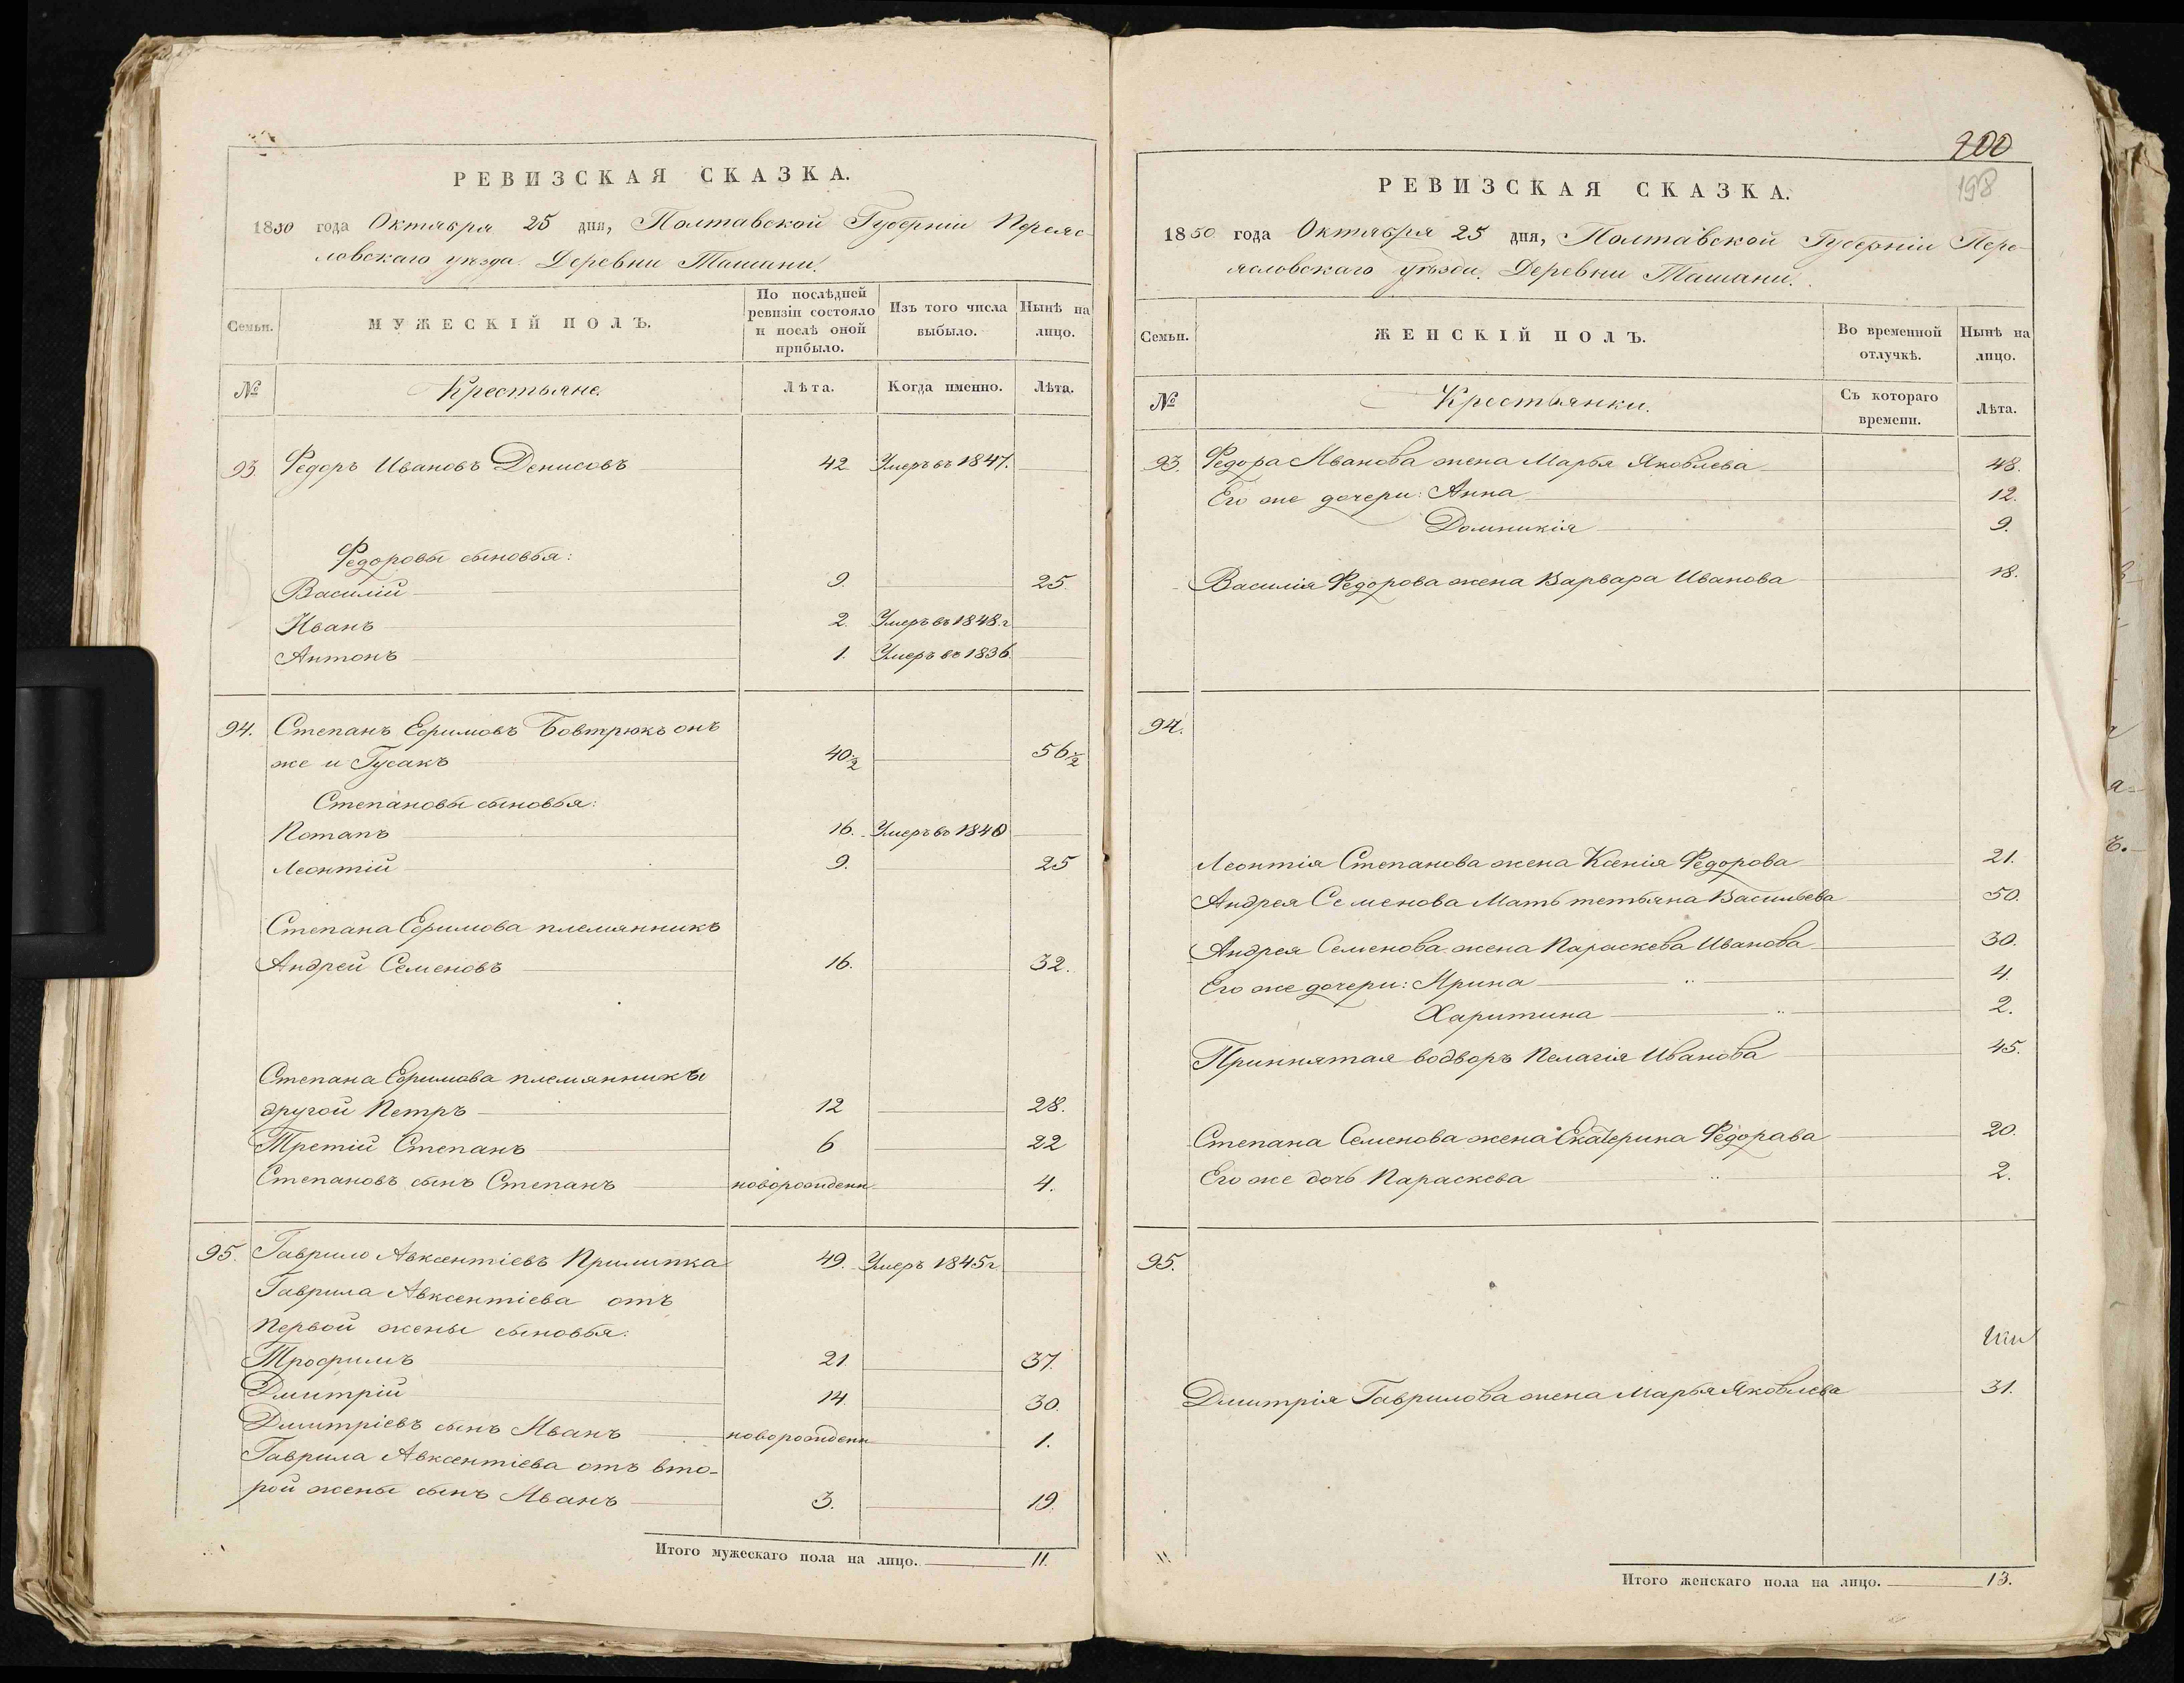 РЕВИЗСКАЯ СКАЗКА.
1850 года Октября 25 дня, Полтавской Губерніи Переяс-
ловскаго уѣзда. Деревни Ташани.
Семьи.
МУЖЕСКІЙ ПОЛЪ.
По послѣдней ревизіи состояло и послѣ оной прибыло.
Изъ того числа выбыло.
Нынѣ на лицо.
№
Крестьяне.
Лѣта.
Когда именно.
Лѣта.
93. Федоръ Ивановъ Денисовъ 42 Умеръ въ 1847.
Федоровы сыновья:
Василій 9. 25.
Иванъ 2. Умеръ въ 1848 г
Антонъ 1. Умеръ въ 1836
94. Степанъ Ефимовъ Бовтрюкъ онъ
же и Гусакъ 40½ 56½
Степановы сыновья:
Потапъ 16. Умеръ въ 1840
Леонтій 9. 25
Степана Ефимова племянникъ
Андрей Семеновъ 16. 32.
Степана Ефимова племянникы
другой Петръ 12 28.
Третій Степанъ 6 22
Степановъ сынъ Степанъ новорожденн 4.
95. Гаврило Авксентіевъ Прилипка 49. Умеръ 1845 г
Гаврила Авксентіева отъ
первой жены сыновья:
Трофимъ 21. 37.
Дмитрій 14. 30.
Дмитріевъ сынъ Иванъ новорожденн 1.
Гаврила Авксентіева отъ вто-
рой жены сынъ Иванъ 3. 19.
Итого мужескаго пола на лицо. 11.
200
198
РЕВИЗСКАЯ СКАЗКА.
1850 года Октября 25 дня, Полтавской Губерніи Пере-
ясловскаго уѣзда. Деревни Ташани.
Семьи.
ЖЕНСКІЙ ПОЛЪ.
Во временной отлучкѣ.
Нынѣ на лицо.
№
Крестьянки.
Съ котораго времени.
Лѣта.
93. Федора Иванова жена Марья Яковлева 48.
Его же дочери: Анна 12.
Домникія 9.
Василія Федорова жена Варвара Иванова 18.
94.
Леонтія Степанова жена Ксенія Федорова 21.
Андрея Семенова Мать тетьяна Васильева 50.
Андрея Семенова жена Параскева Иванова 30.
Его же дочери: Ирина 4.
Харитина 2.
Приннятая водворъ Пелагія Иванова 45.
Степана Семенова жена Екатерина Федорава 20.
Его же дочь Параскева 2.
95.
Дмитрія Гаврилова жена Марья Яковлева 31.
Итого женскаго пола на лицо. 13.